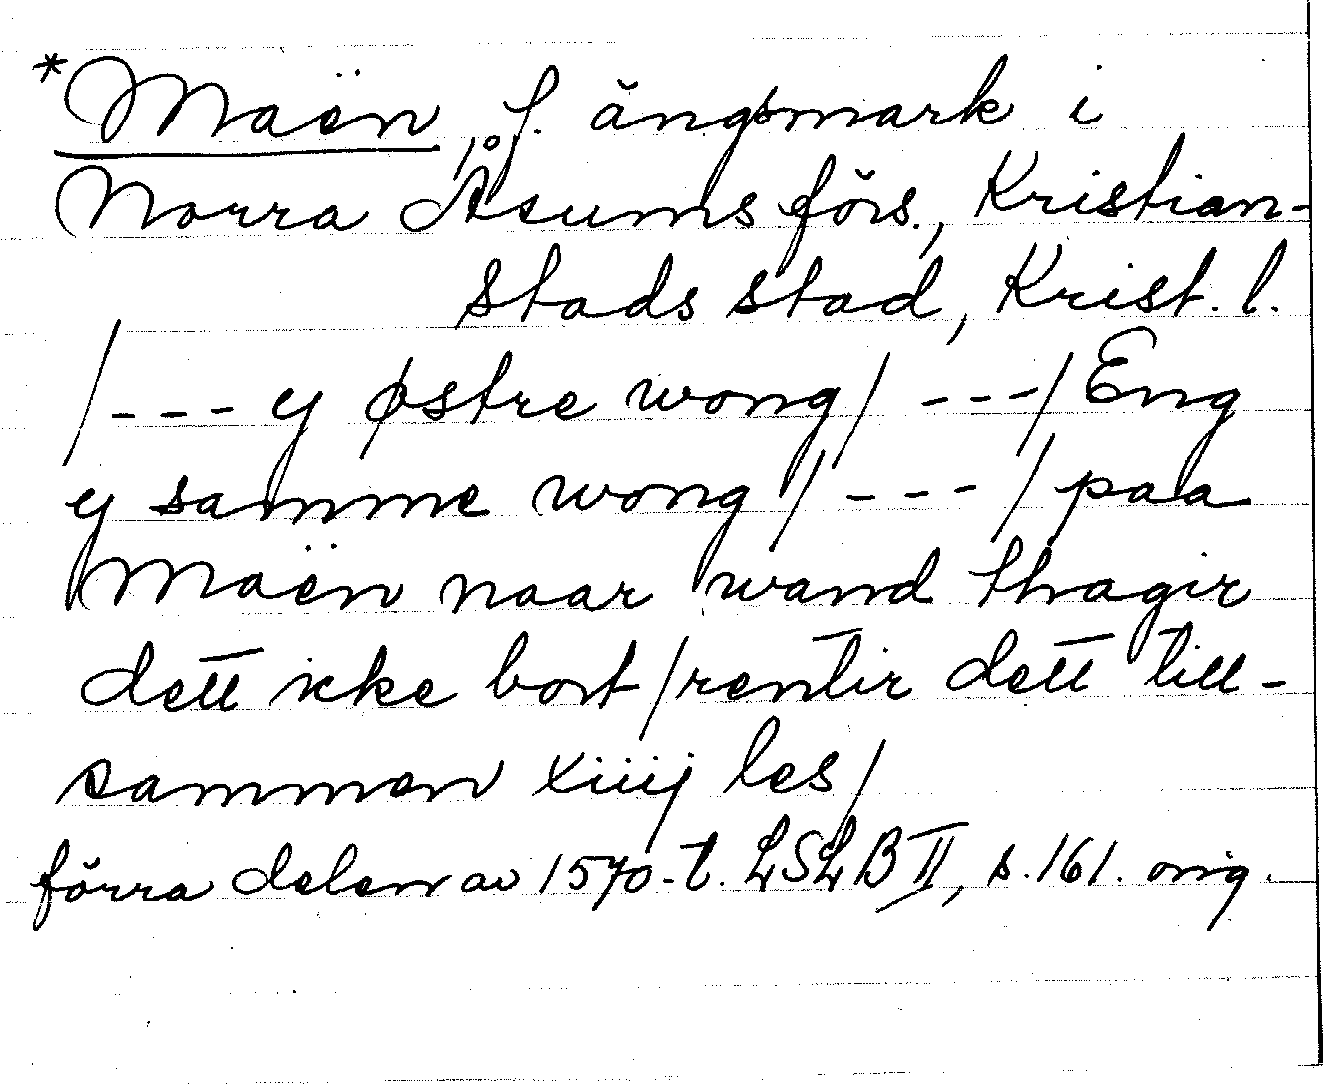 *Maën, f. ängsmark i
Norra Åsums förs., Kristian-
stads stad, Krist. l.
/--- y østre wong/ ---/ Eng
y samme wong /--- / paa
Maën naar wand thagir
dett icke bort / rentir dett till-
sammen xiiij les /
förra delen av 1570-t. LSLB II, s. 161. orig.